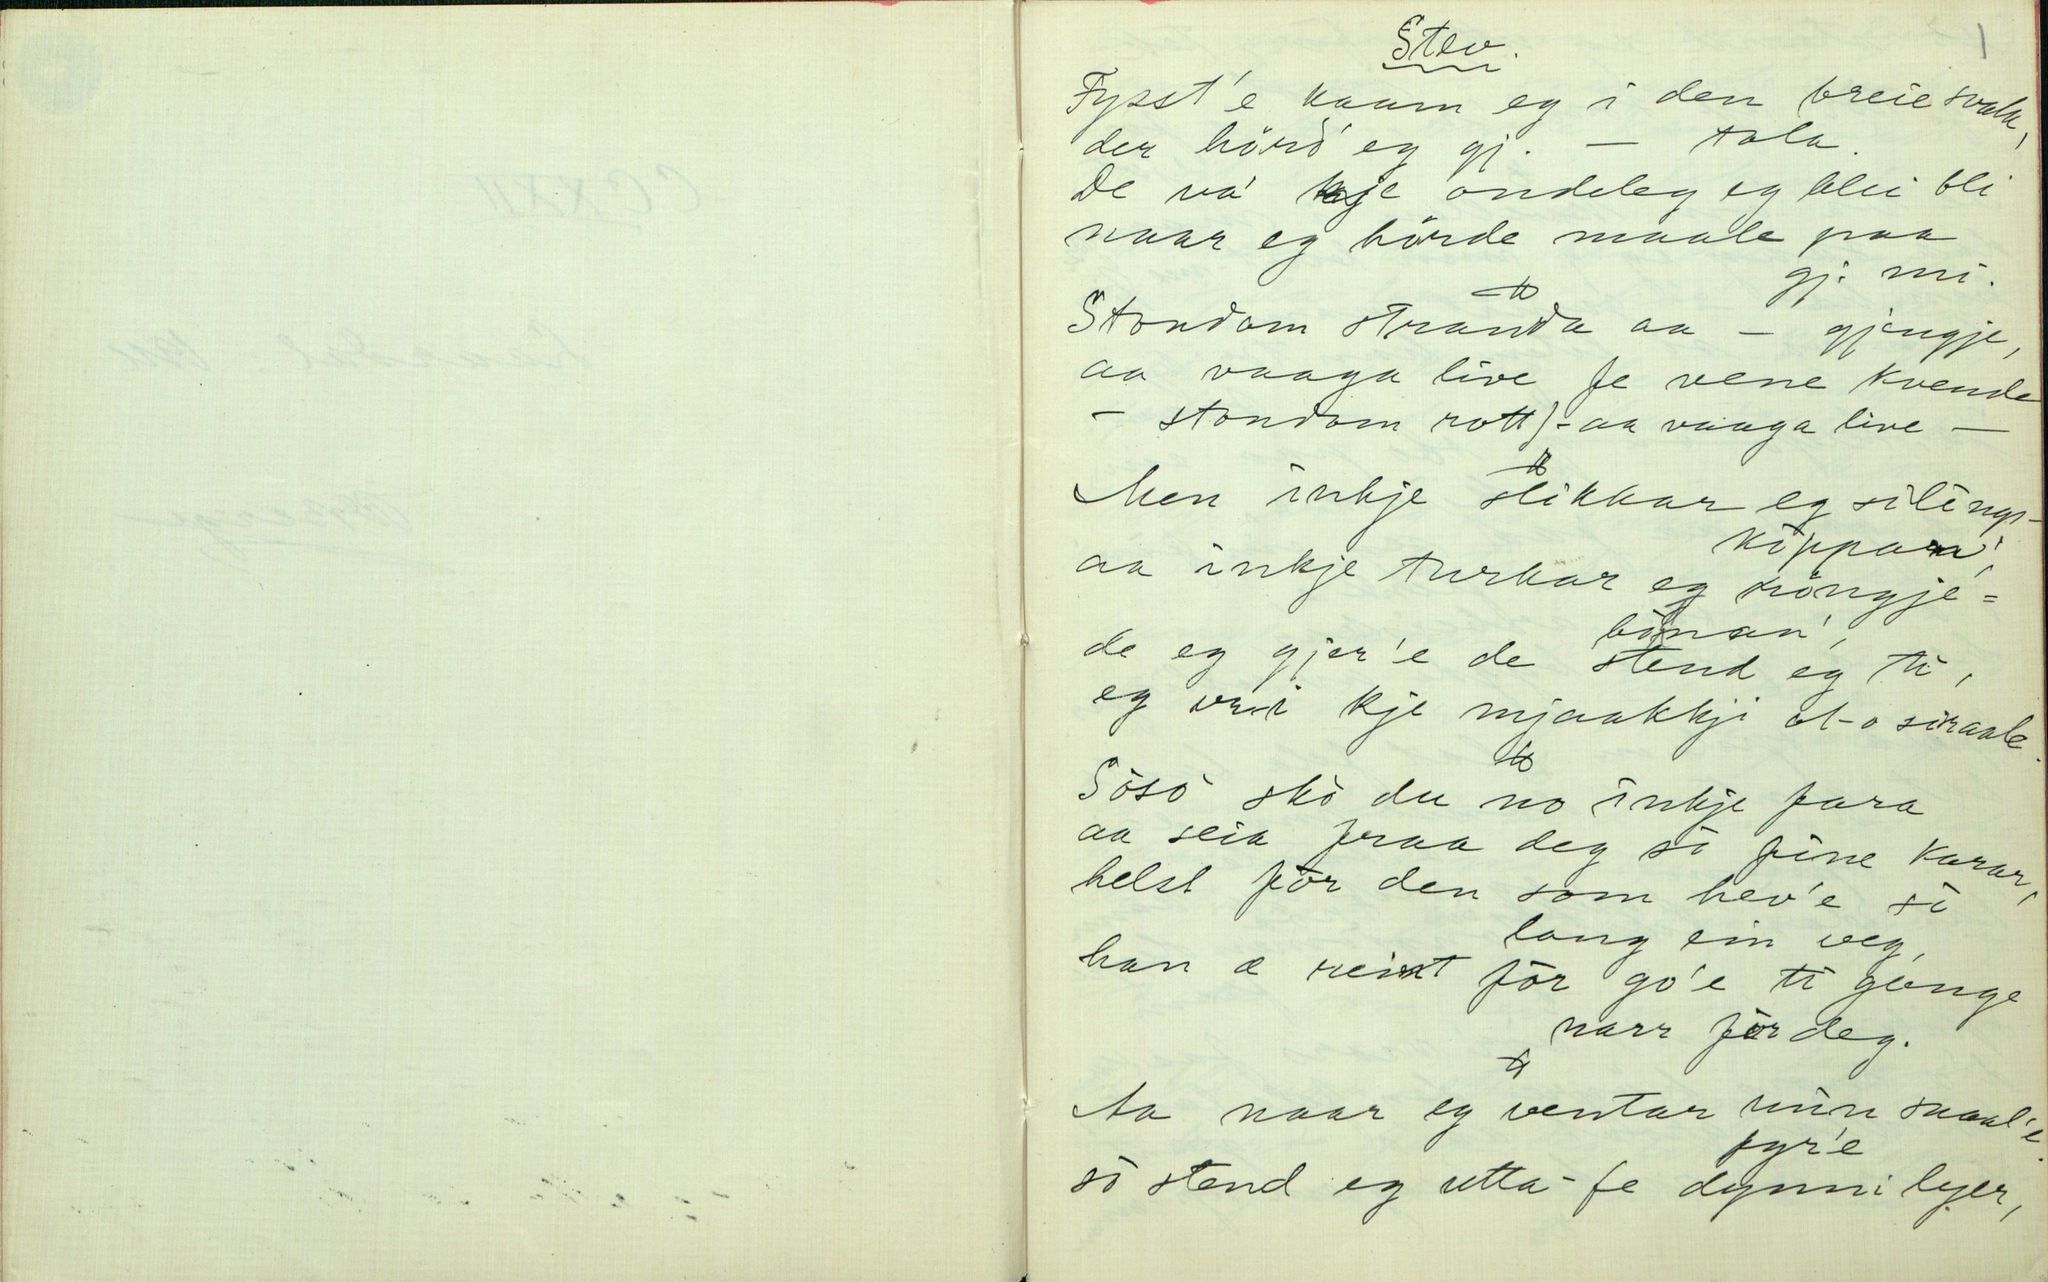 1
Stev.
Fysst'e kaam eg i den breie svale,
der hörd' eg gj. — tala.
De va' kje ondeleg eg blei bli
naar eg hörde maale paa
gj. mi.
Stondom stranda aa — gjengje,
aa vaaga live fe vene kvende
— stondom rott) - aa vaaga live —
Men inkje slikkar eg silings-
koppan',
aa inkje turkar eg röngje=
bönan',
de eg gjer'e de stend eg ti,
eg vri kje mjaakkji ot-o siraale.
Söso sko du no inkje fara
aa seia fraa deg so fine karar,
helst för den som hev'e so
long ein veg,
han æ reint för go'e ti gönge
narr för deg.
Aa naar eg ventar vinn snaal'e
fyr'e
so stend eg utta-fe dynni lyer,